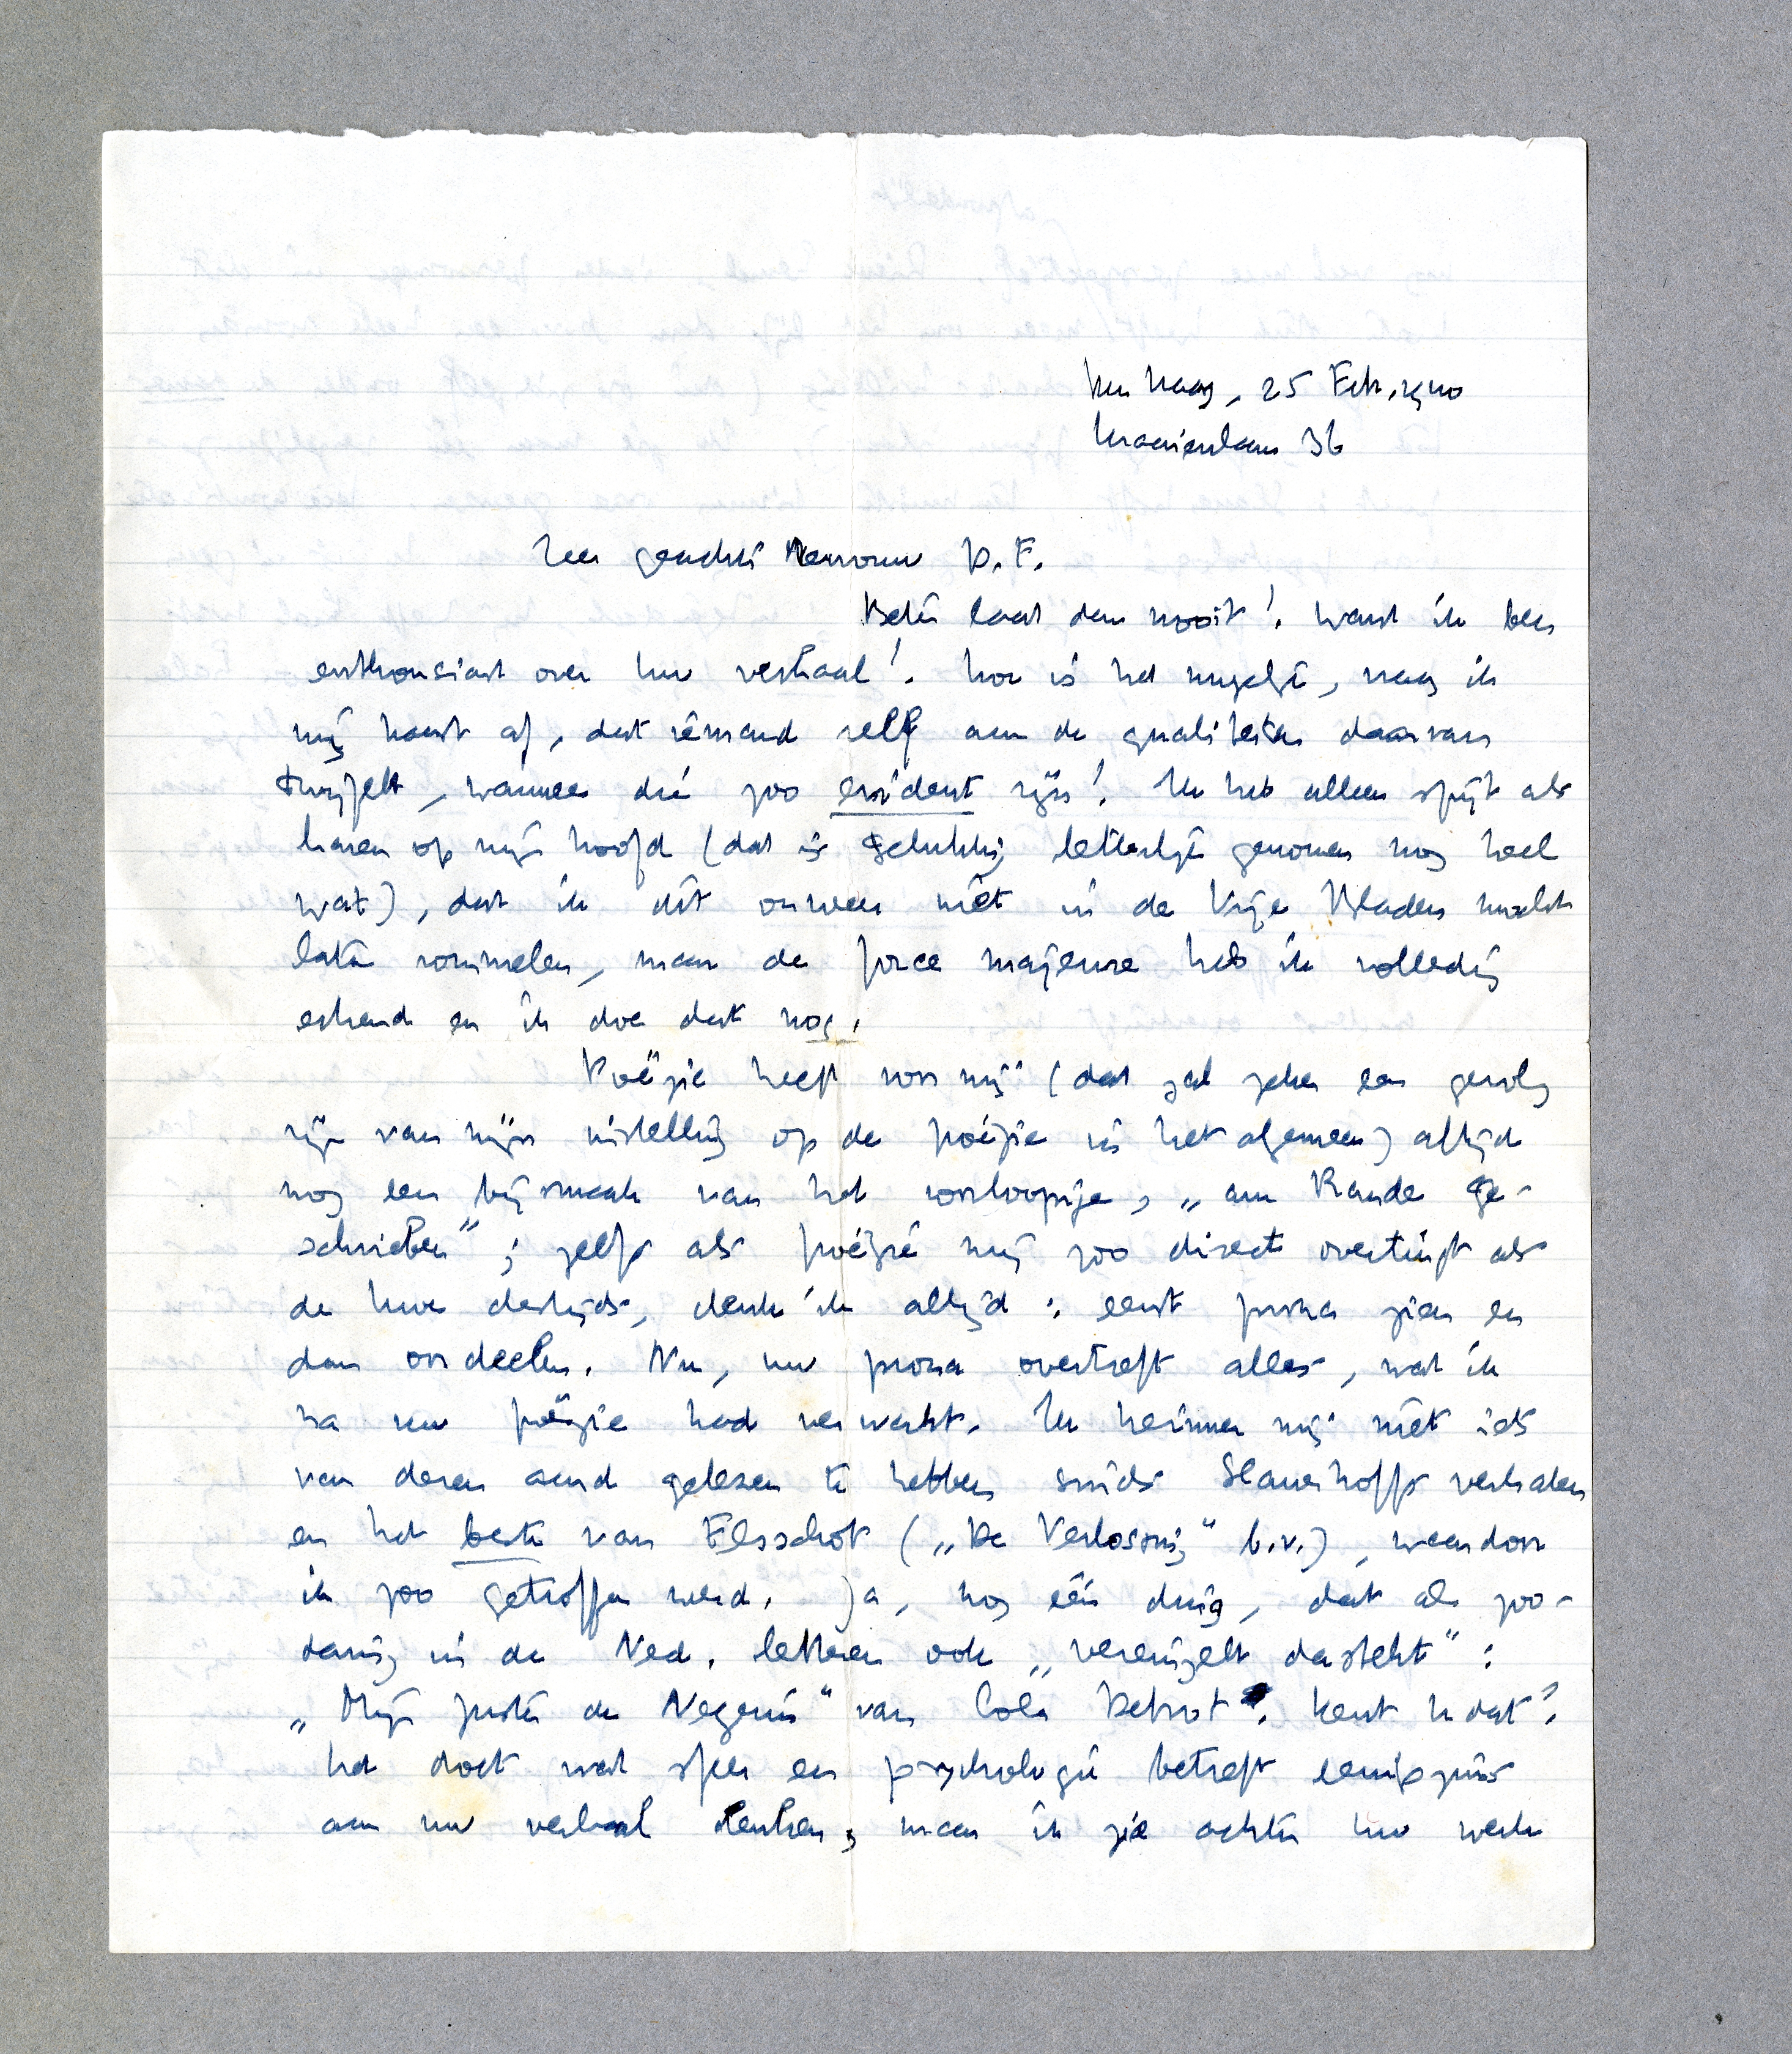 Den Haag, 25 Febr. 1940
Kraaienlaan 36
Zeer geachte Mevrouw D.F.
Beter laat dan nooit! Want ik ben
enthousiast over Uw verhaal! Hoe is het mogelijk, vraag ik
mij haast af, dat iemand zelf aan de qualiteiten daarvan
twijfelt, wanneer die zoo evident zijn! Ik heb alleen spijt als
haren op mijn hoofd (dat is gelukkig letterlijk genomen nog heel
wat), dat ik dit onweer niet in de Vrije Bladen mocht
laten rommelen, maar de force majeure heb ik volledig
erkend en ik doe dat nog.
Poëzie heeft voor mij (dat zal zeker een gevolg
zijn van mijn instelling op de poëzie in het algemeen) altijd
nog een bijsmaak van het voorloopige, „am Rande ge-
schrieben"; zelfs als poëzie mij zoo direct overtuigt als
de Uwe destijds, denk ik altijd: eerst proza zien en
dan oordeelen. Nu, uw proza overtreft alles, wat ik
na uw poëzie had verwacht. Ik herinner mij niet iets
van dezen aard gelezen te hebben sinds Slauerhoffs verhalen
en het beste van Elsschot („De Verlossing" b.v.), waardoor
ik zoo getroffen werd. Ja, nog één ding, dat als zoo-
danig in de Ned. letteren ook „vereinzelt dasteht":
„Mijn Zuster de Negerin" van Cola Debrot. Kent U dat?
Het doet wat sfeer en psychologie betreft eenigszins
aan uw verhaal denken, maar ik zie achter Uw werk